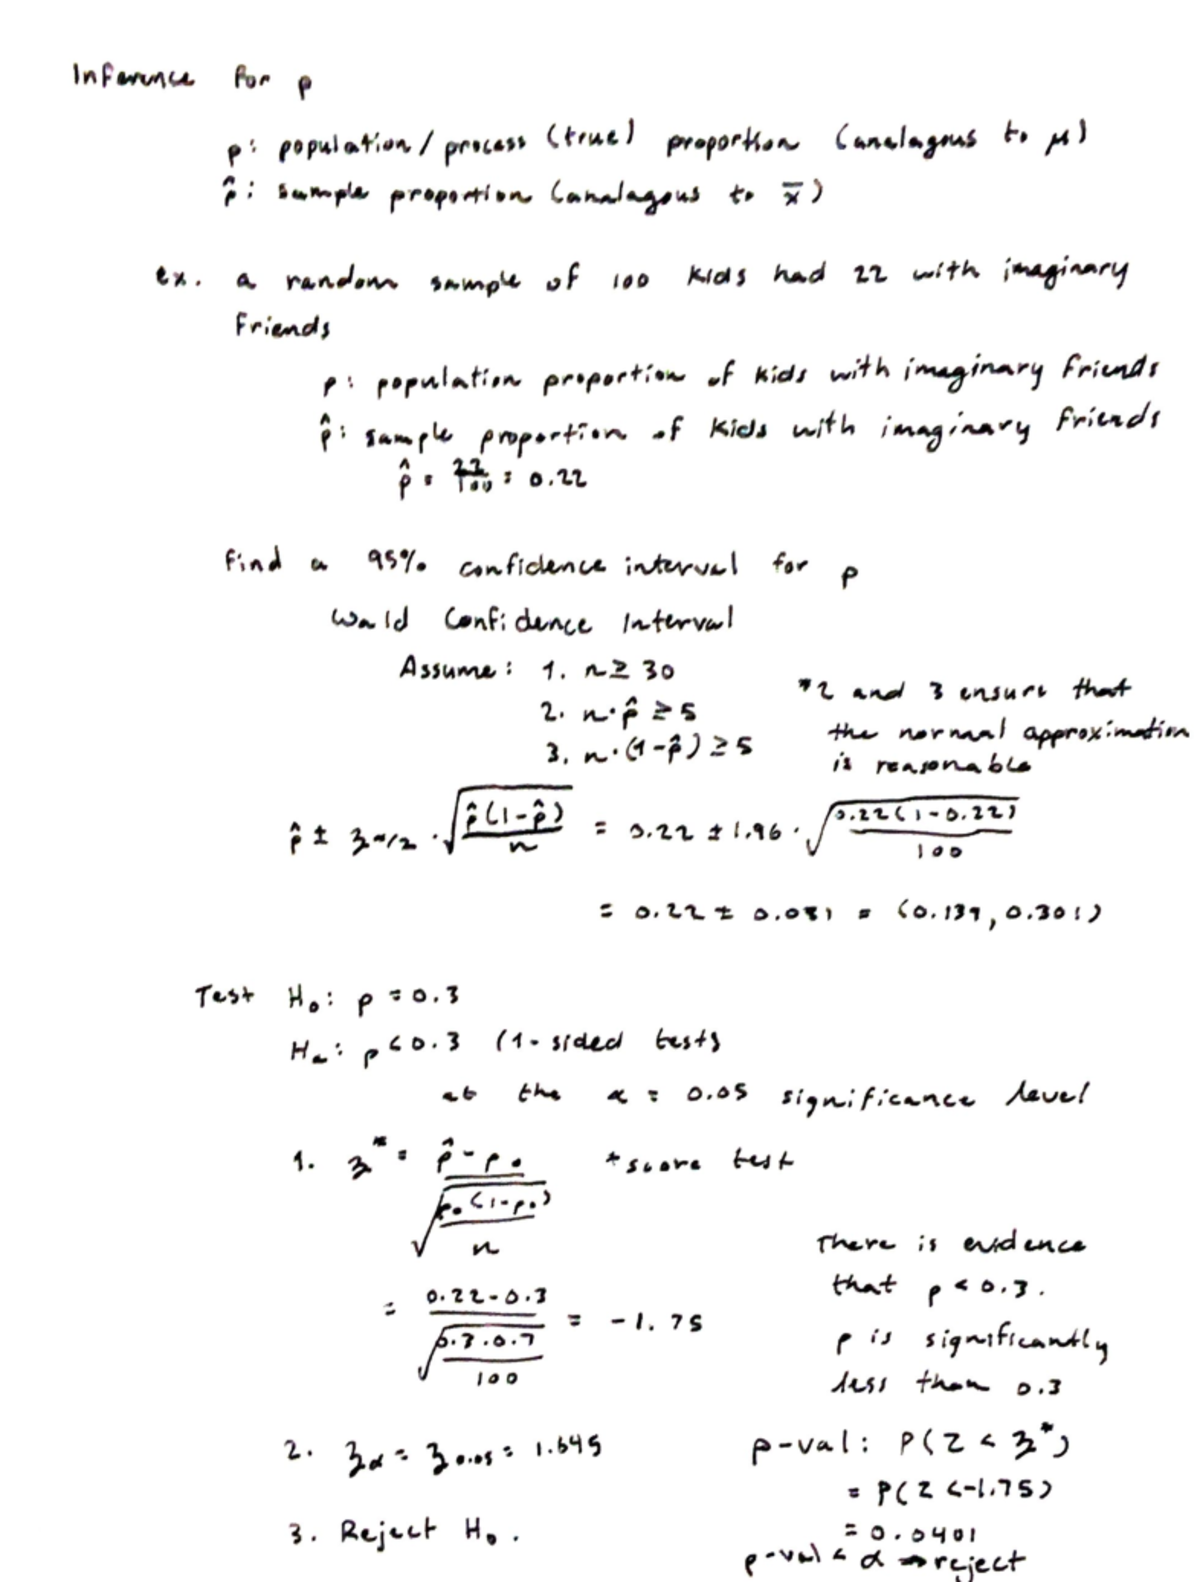 Inference for p
p: population/process (true) proportion (analagous to μ)
p̂: sample proportion (analagous to x̄)
ex. a random sample of 100 kids had 22 with imaginary
friends
p: population proportion of kids with imaginary friends
p̂: sample proportion of kids with imaginary friends
p̂ = 22/100 = 0.22
Find a 95% confidence interval for p
Wald Confidence Interval
Assume: 1. n ≥ 30
2. n·p̂ ≥ 5
3. n·(1-p̂) ≥ 5
*2 and 3 ensure that
the normal approximation
is reasonable
p̂ ± z_α/2 · √(p̂(1-p̂)/n) = 0.22 ± 1.96 · √(0.22(1-0.22)/100)
= 0.22 ± 0.081 = (0.139, 0.301)
Test H₀: p = 0.3
Hₐ: p < 0.3 (1-sided test)
at the α = 0.05 significance level
1. z* = (p̂ - p₀)/√(p₀(1-p₀)/n) *score test
= (0.22-0.3)/√(0.3·0.7/100) = -1.75
2. z_α = z_0.05 = 1.645
3. Reject H₀.
There is evidence
that p < 0.3.
p is significantly
less than 0.3
p-val: P(Z < z*)
= P(Z < -1.75)
= 0.0401
p-val < α ⇒ reject